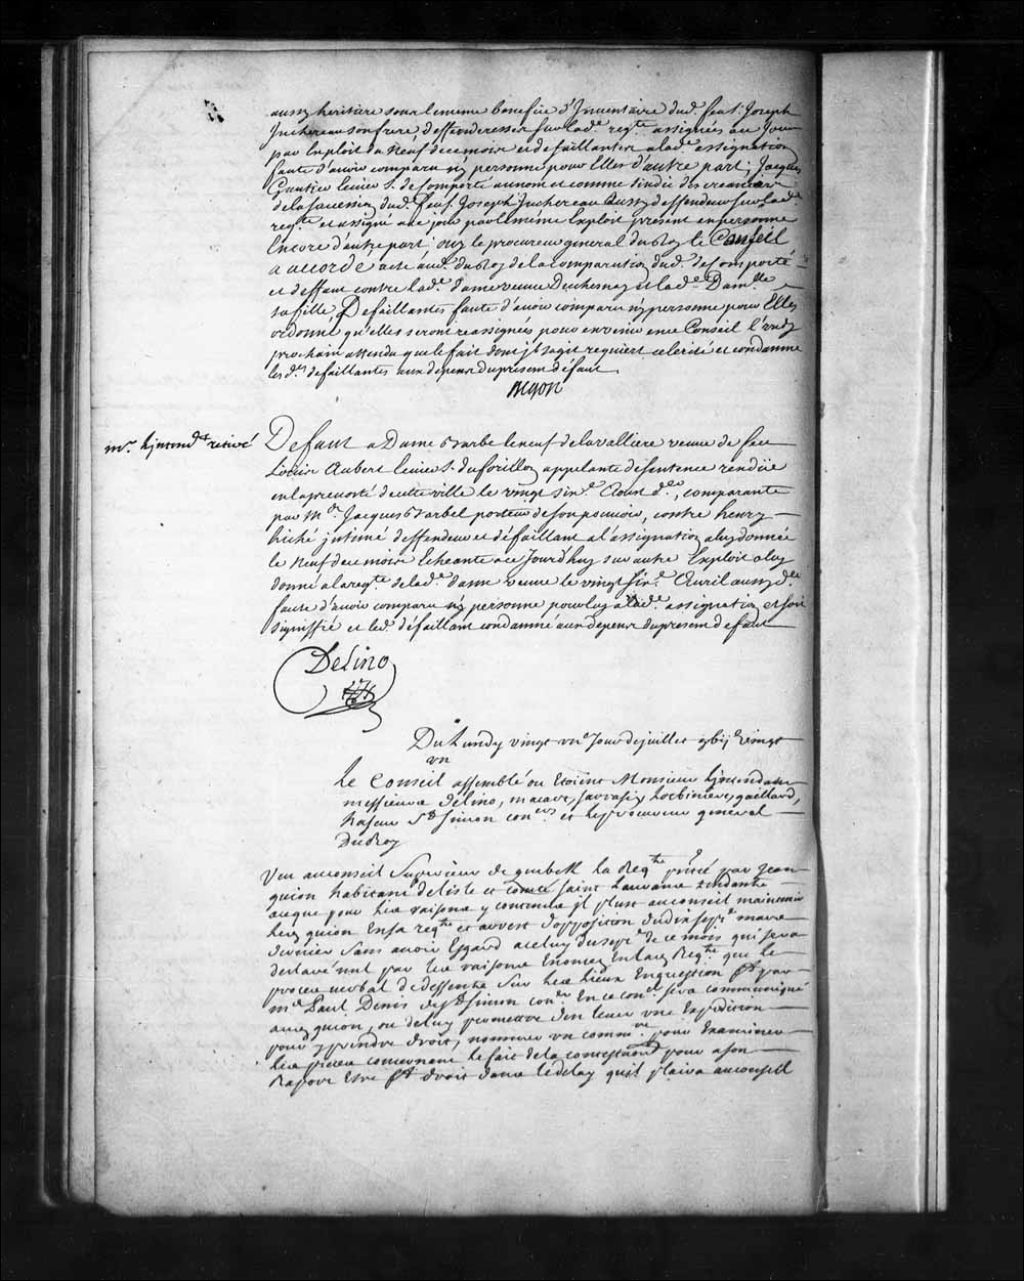 aussy heritiere sous le meme benefice d'Inventaire dud. feu S. Joseph
Juchereau son frere deffenderesses sur lad.e req.te assignées a ce Jour
par Exploit du Neuf de ce mois et defaillantes a lad.e assignation
faute d'avoir comparu ny personne pour Elles d'autre part; Jacques
Gautier le S. de Comporté au nom et comme sindic des creanciers
de la succession dud. feu S. Joseph Juchereau Aussy deffendeur sur lad.e
req.te et assigné a ce jour par le méme Exploit present en personne
Encore d'autre part; ouy le procureur general du Roy le Conseil
a accordé acte au du Roy de la comparution dud. de Comporté
et deffaut contre lad.e dame veuve Duchesnay et lad.e Dam.lle
sa fille, Defaillantes faute d'avoir comparu ny personne pour Elles
ordonne qu'elles seront reassignées pour en venir en ce Conseil l'undy
prochain attendu que le fait dont jl sagit requiert celerité et condamne
les d.es defaillantes aux depens du present défaut
Begon
m.r l'jntend.t retiré
Defaut a Dame Barbe leneuf de la valliere veuve de feu
Louis Aubert S. du forillon appelante de sentence rendüe
en la prevosté de cette ville le vingt six.e Aoust d.er, comparante
par M.e Jacques Barbel porteur de son pouvoir, contre henry
hiché jntimé deffendeur et défaillant a l'assignation a luy donnée
le Neuf de ce mois Echeante a ce Jourd'huy sur autre Exploit a luy
donné a la req.te de lad.e dame veuve le vingt six.e Avril aussy d.er
faute d'avoir comparu ny personne pour luy a lad.e assignation et soit
signiffié et led. défaillant condamné aux depens du present defaut
Delino
Du Lundy vingt un.e Jour de juillet vingt
un
Le Conseil assemblé ou Etoient Monsieur L'jntendant
messieurs delino, macart, sarrasin, Lotbiniere, gaillard,
hazeur S.t simon con.ers et le procureur general
Du Roy
Veu au conseil Superieur de quebek la Req.te par Jean
guion habitant de l'isle et comté saint Laurans tendante
a ce que pour les raisons y contenues jl plust au conseil maintenir
led. guion En sa req.te et arrest d'opposition du dix sept.e mars
dernier sans avoir Egard a celuy du sept.e de ce mois qui sera
declaré nul par les raisons Enoncez En lad. Req.te que le
procez verbal de dessente sur les lieux En question f.t par
m.e Paul Denis de S.t simon con.er En ce con.el sera communiqué
aud. guion, ou de luy permettre d'en lever une Expedition
pour y prendre droit, nommer un comm.re pour Examiner
les pieces concernant le fait de la contestation pour a son
Raport Etre f.t droit dans le delay quil plaira au conseil